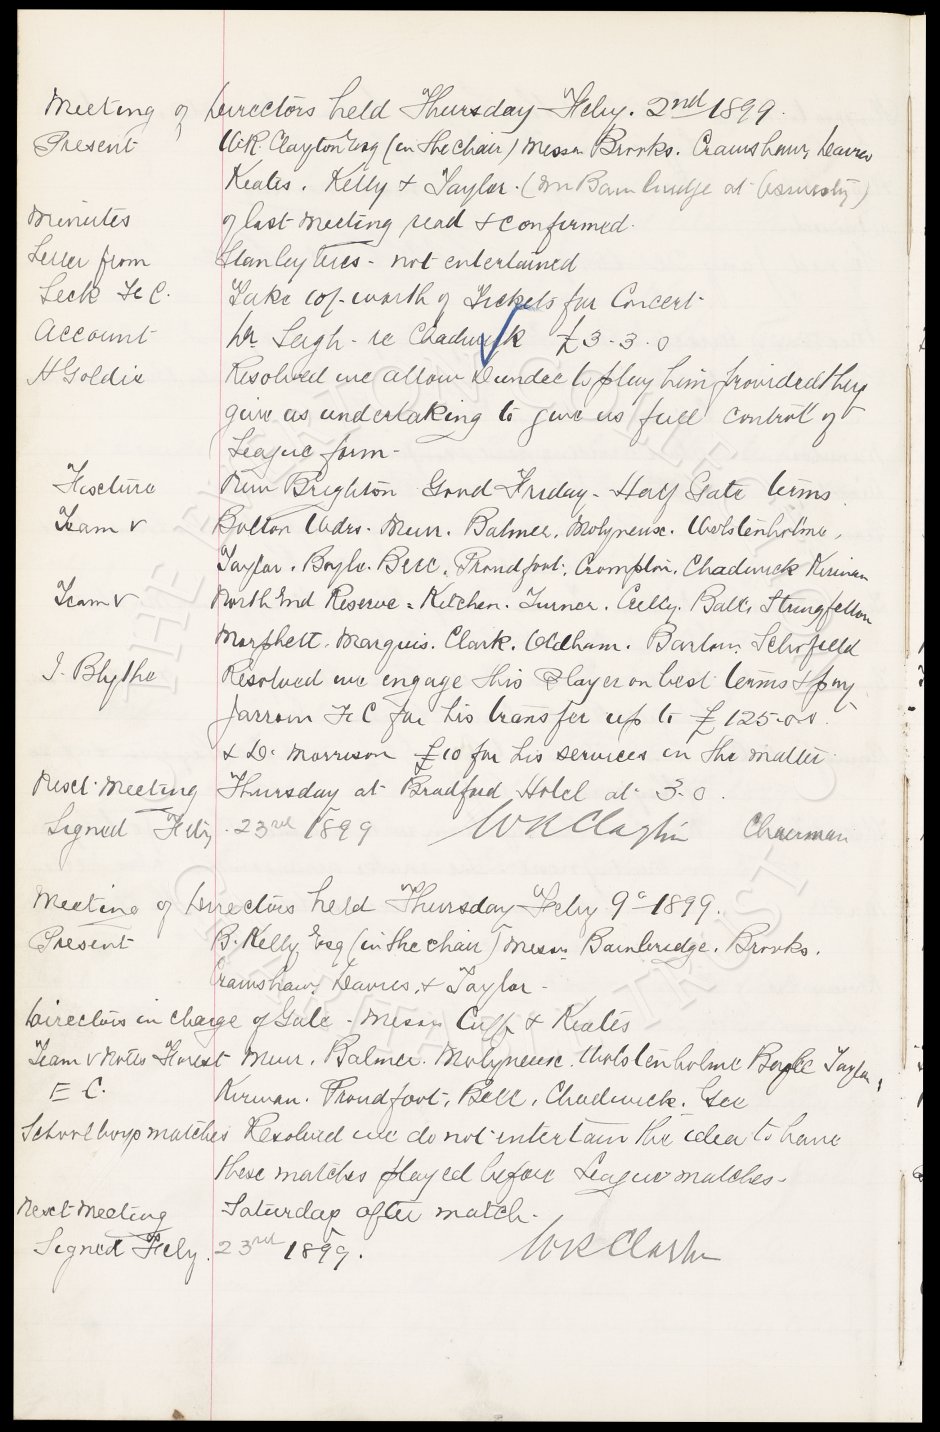 Meeting of Directors held Thursday Feby. 2nd 1899.
Present W.R. Clayton Esq (in the chair) Messrs Brooks. Crawshaw, Davies
Keates. Kelly & Taylor. (Mr Bainbridge at
Minutes of last meeting read & confirmed.
Letter from Stanley - not entertained
Leek F C. Take 10/- worth of Tickets for Concert
Account Dr. Leigh - re Chadwick £3-3-0
H Goldie Resolved we allow Dundee to play him provided they
give us undertaking to give us full control of
League form -
Fixture New Brighton Good Friday - Half Gate terms
Team v Bolton Wdrs. Muir. Balmer. Molyneux. Wolstenholme,
Taylor. Boyle. Bell. Proudfoot. Crompton. Chadwick Kirwan
Team v North End Reserve - Kitchen. Turner. Balls Stringfellow
Morphett. Marquis. Clark. Oldham. Barlow. Schofield
J. Blythe Resolved we engage this Player on best terms & pay
Jarrow F C for his transfer up to £125-0-0.
& D. Morrison £10 for his services in the matter
Next Meeting Thursday at Bradford Hotel at 3.0.
Signed Feby. 23rd 1899 W R Clayton Chairman
Meeting of Directors held Thursday Feby 9th 1899.
Present B. Kelly Esq (in the chair) Messrs Bainbridge. Brooks.
Crawshaw, Davies, & Taylor -
Directors in charge of Gate - Messrs Cuff & Keates
Team v Notts Forest Muir. Balmer. Molyneux. Wolstenholme Boyle Taylor,
E C. Kirwan. Proudfoot. Bell. Chadwick. Gee
Schoolboys matches Resolved we do not entertain the idea to have
these matches played before League matches -
Next Meeting Saturday after match -
Signed Feby. 23rd 1899. W R Clayton